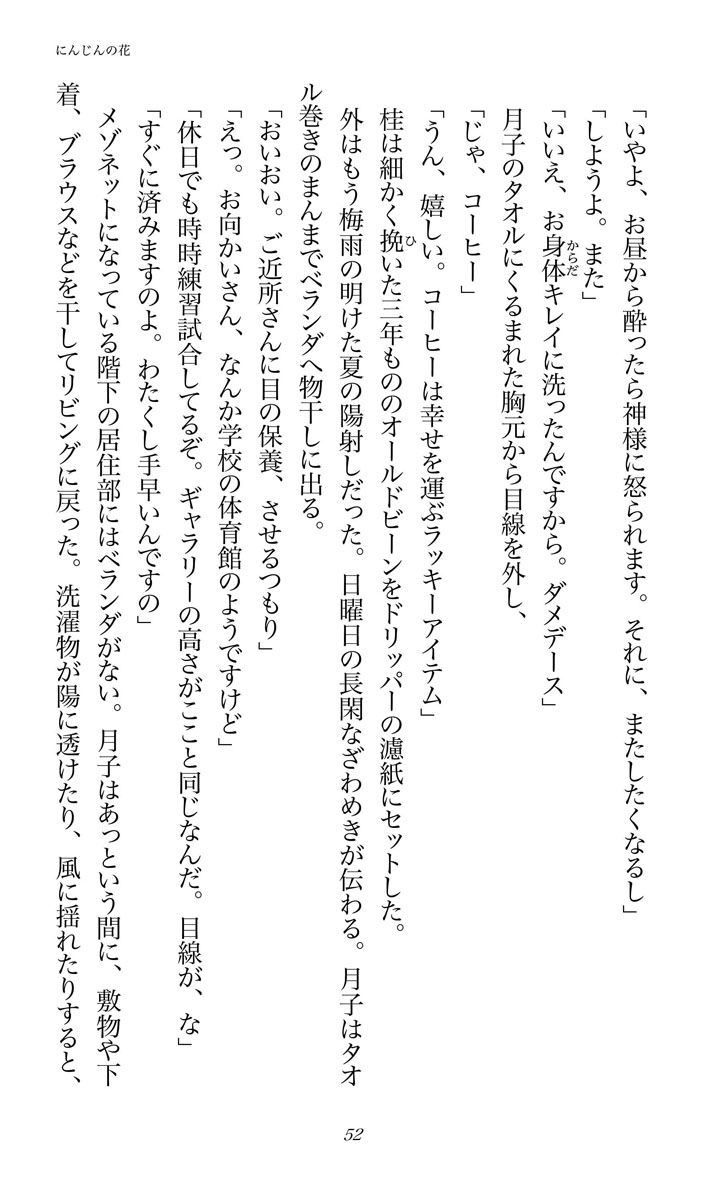 にんじんの花
「いやよ、お昼から酔ったら神様に怒られます。それに、またしたくなるし」
「しようよ。また」
「いいえ、お身体キレイに洗ったんですから。ダメデース」
からだ
月子のタオルにくるまれた胸元から目線を外し、
「じゃ、コーヒー」
「うん、嬉しい。コーヒーは幸せを運ぶラッキーアイテム」
桂は細かく挽いた三年もののオールドビーンをドリッパーの濾紙にセットした。
ひ
外はもう梅雨の明けた夏の陽射しだった。日曜日の長閑なざわめきが伝わる。月子はタオ
ル巻きのまんまでベランダへ物干しに出る。
「おいおい。ご近所さんに目の保養、させるつもり」
「えっ。お向かいさん、なんか学校の体育館のようですけど」
「休日でも時時練習試合してるぞ。ギャラリーの高さがここと同じなんだ。目線が、な」
「すぐに済みますのよ。わたくし手早いんですの」
メゾネットになっている階下の居住部にはベランダがない。月子はあっという間に、敷物や下
着、ブラウスなどを干してリビングに戻った。洗濯物が陽に透けたり、風に揺れたりすると、
52